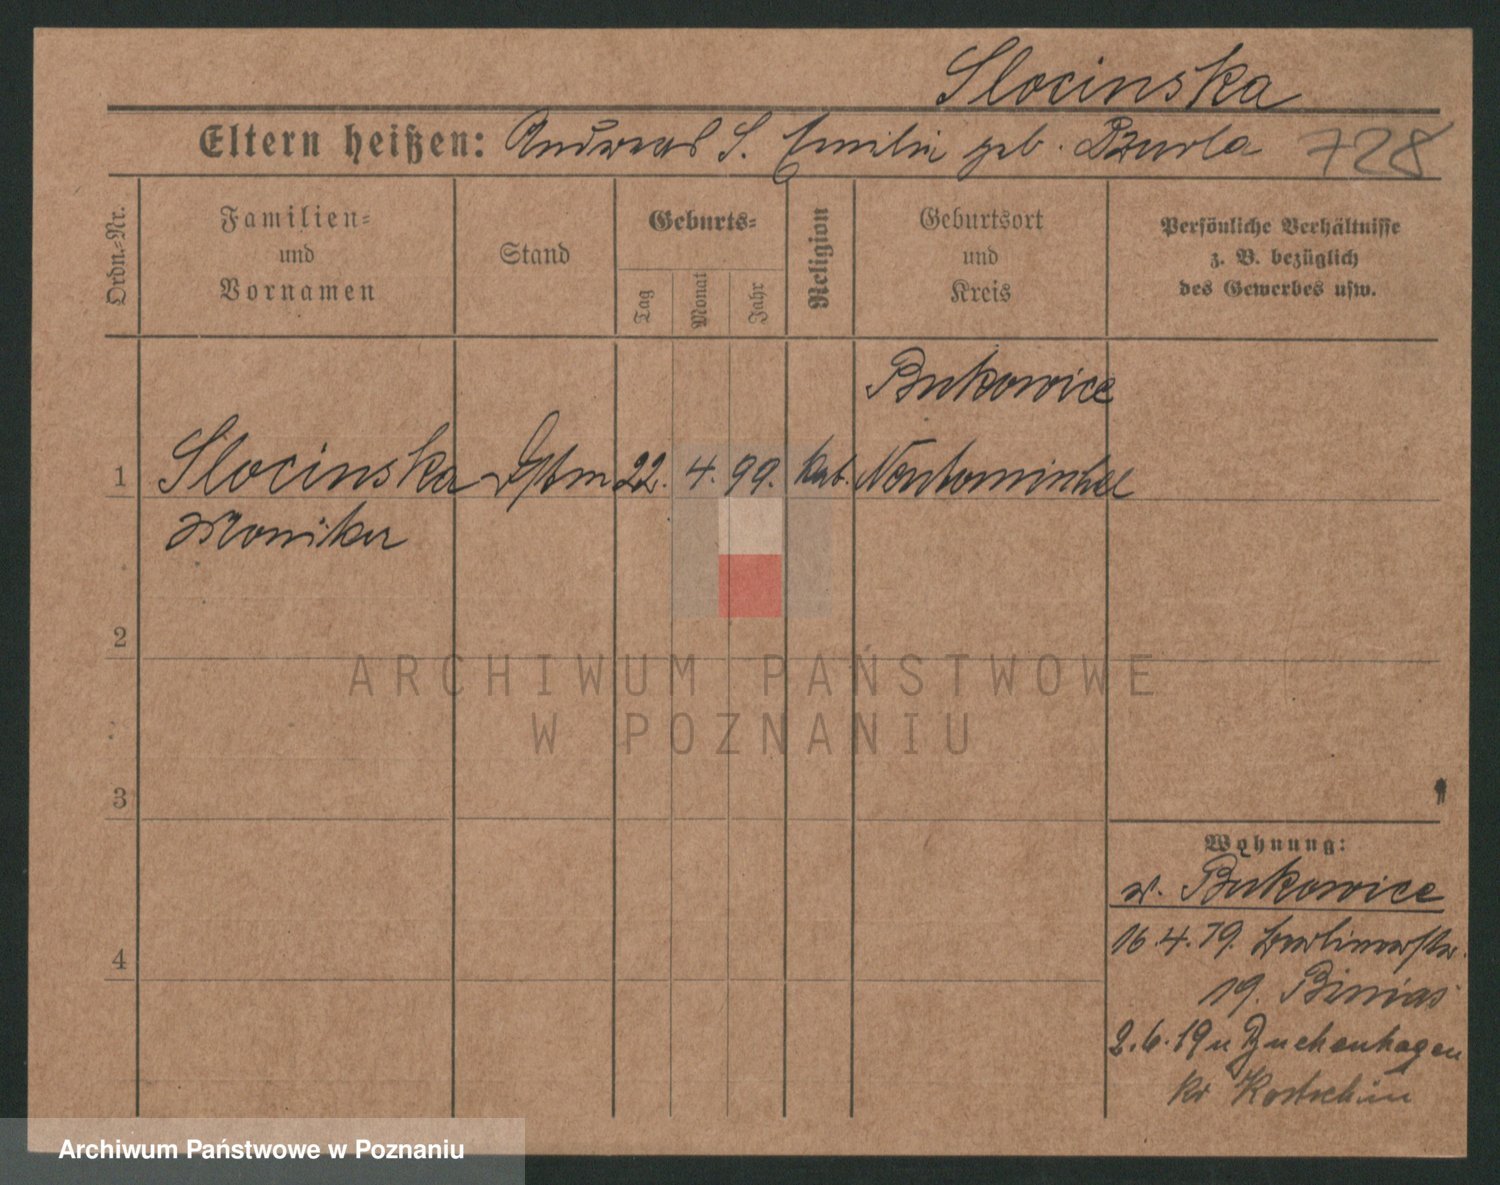 Slocinska
Eltern heißen: Andreas S. Emilie geb. 728
Ordn.-Nr.
Familien-
und
Vornamen
Stand
Geburts-
Tag
Monat
Jahr
Religion
Geburtsort
und
Kreis
Persönliche Verhältnisse
z. B. bezüglich
des Gewerbes usw.
Bukowice
1 Slocinska 22. 4. 99. kat.
Monika
2
ARCHIWUM PAŃSTWOWE
W POZNANIU
3
4
Wohnung:
v. Bukowice
16.4.19. Berlinerstr.
19.
2.6.19 n Buchenhagen
Kr Kostschin
Archiwum Państwowe w Poznaniu